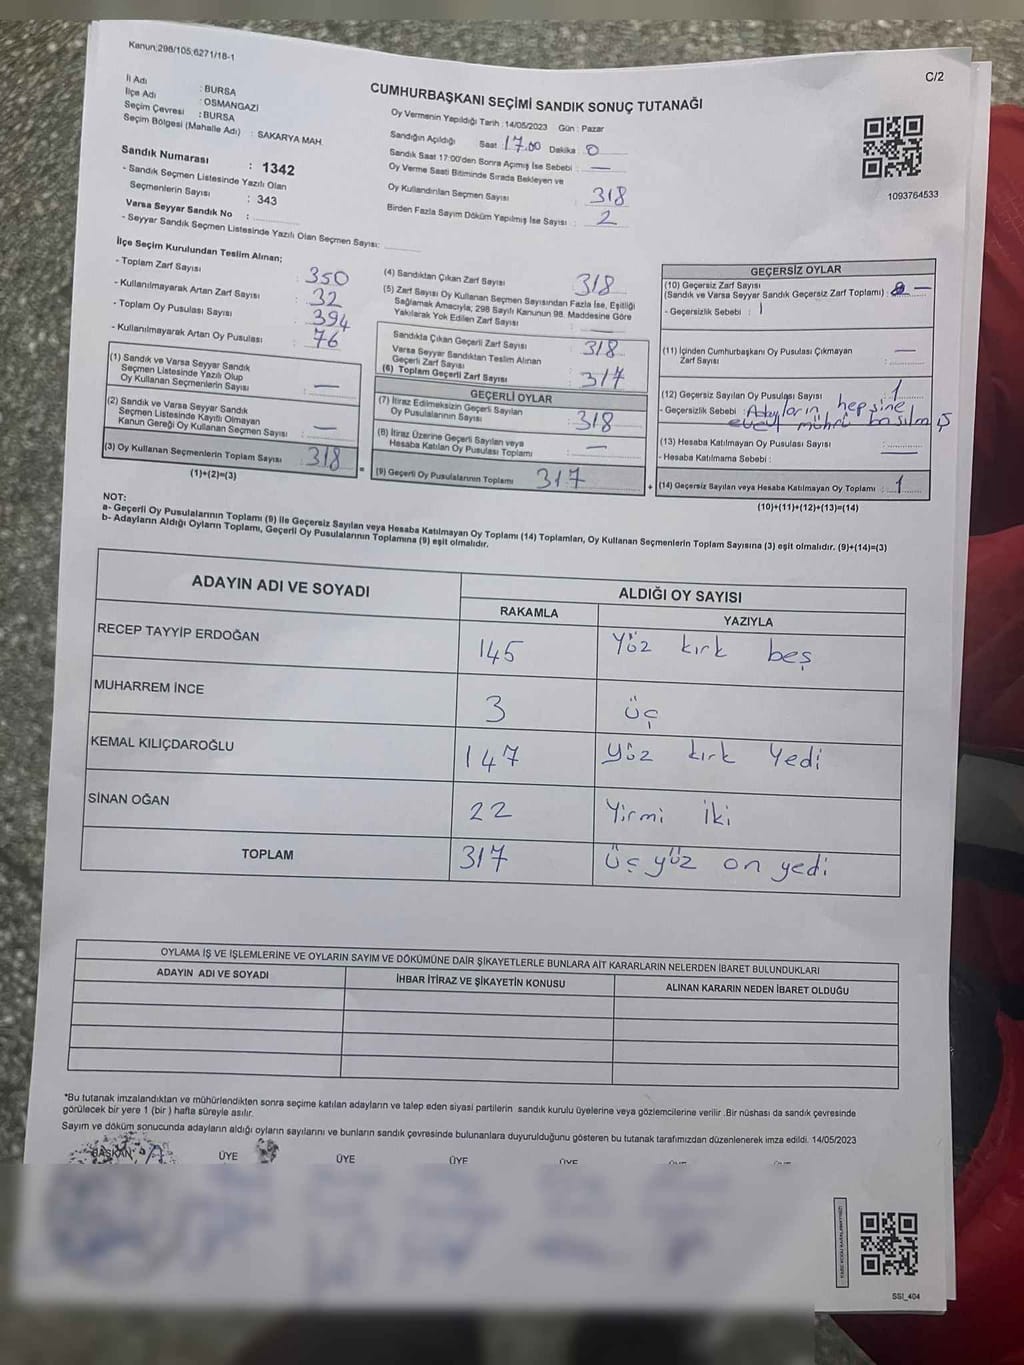 Kanun;298/105;6271/18-1
C/2
CUMHURBAŞKANI SEÇİMİ SANDIK SONUÇ TUTANAĞI
İl Adı : BURSA
İlçe Adı : OSMANGAZİ
Seçim Çevresi : BURSA
Seçim Bölgesi (Mahalle Adı) : SAKARYA MAH.
Sandık Numarası : 1342
- Sandık Seçmen Listesinde Yazılı Olan
Seçmenlerin Sayısı : 343
Varsa Seyyar Sandık No :
- Seyyar Sandık Seçmen Listesinde Yazılı Olan Seçmen Sayısı:
Oy Vermenin Yapıldığı Tarih : 14/05/2023 Gün : Pazar
Sandığın Açıldığı Saat : 17.00 Dakika : 0
Sandık Saat 17:00'den Sonra Açılmış İse Sebebi : —
Oy Verme Saati Bitiminde Sırada Bekleyen ve
Oy Kullandırılan Seçmen Sayısı : 318
Birden Fazla Sayım Döküm Yapılmış İse Sayısı : 2
1093764533
İlçe Seçim Kurulundan Teslim Alınan;
- Toplam Zarf Sayısı : 350
- Kullanılmayarak Artan Zarf Sayısı : 32
- Toplam Oy Pusulası Sayısı : 394
- Kullanılmayarak Artan Oy Pusulası : 76
(1) Sandık ve Varsa Seyyar Sandık
Seçmen Listesinde Yazılı Olup
Oy Kullanan Seçmenlerin Sayısı : —
(2) Sandık ve Varsa Seyyar Sandık
Seçmen Listesinde Kayıtlı Olmayan
Kanun Gereği Oy Kullanan Seçmen Sayısı : —
(3) Oy Kullanan Seçmenlerin Toplam Sayısı : 318
(1)+(2)=(3)
(4) Sandıktan Çıkan Zarf Sayısı : 318
(5) Zarf Sayısı Oy Kullanan Seçmen Sayısından Fazla İse, Eşitliği
Sağlamak Amacıyla; 298 Sayılı Kanunun 98. Maddesine Göre
Yakılarak Yok Edilen Zarf Sayısı : —
Sandıkta Çıkan Geçerli Zarf Sayısı : 318
Varsa Seyyar Sandıktan Teslim Alınan
Geçerli Zarf Sayısı :
(6) Toplam Geçerli Zarf Sayısı : 317
GEÇERLİ OYLAR
(7) İtiraz Edilmeksizin Geçerli Sayılan
Oy Pusulalarının Sayısı : 318
(8) İtiraz Üzerine Geçerli Sayılan veya
Hesaba Katılan Oy Pusulası Toplamı : —
= (9) Geçerli Oy Pusulalarının Toplamı 317
GEÇERSİZ OYLAR
(10) Geçersiz Zarf Sayısı
(Sandık ve Varsa Seyyar Sandık Geçersiz Zarf Toplamı) : —
- Geçersizlik Sebebi : 1
(11) İçinden Cumhurbaşkanı Oy Pusulası Çıkmayan
Zarf Sayısı : —
(12) Geçersiz Sayılan Oy Pusulası Sayısı : 1
- Geçersizlik Sebebi : Adayların hepsine
evet mührü basılmış
(13) Hesaba Katılmayan Oy Pusulası Sayısı : —
- Hesaba Katılmama Sebebi :
+ (14) Geçersiz Sayılan veya Hesaba Katılmayan Oy Toplamı : 1
(10)+(11)+(12)+(13)=(14)
NOT:
a- Geçerli Oy Pusulalarının Toplamı (9) İle Geçersiz Sayılan veya Hesaba Katılmayan Oy Toplamı (14) Toplamları, Oy Kullanan Seçmenlerin Toplam Sayısına (3) eşit olmalıdır. (9)+(14)=(3)
b- Adayların Aldığı Oyların Toplamı, Geçerli Oy Pusulalarının Toplamına (9) eşit olmalıdır.
ADAYIN ADI VE SOYADI
ALDIĞI OY SAYISI
RAKAMLA YAZIYLA
RECEP TAYYİP ERDOĞAN 145 Yüz kırk beş
MUHARREM İNCE 3 üç
KEMAL KILIÇDAROĞLU 147 Yüz kırk Yedi
SİNAN OĞAN 22 Yirmi iki
TOPLAM 317 üç yüz on yedi
OYLAMA İŞ VE İŞLEMLERİNE VE OYLARIN SAYIM VE DÖKÜMÜNE DAİR ŞİKAYETLERLE BUNLARA AİT KARARLARIN NELERDEN İBARET BULUNDUKLARI
ADAYIN ADI VE SOYADI İHBAR İTİRAZ VE ŞİKAYETİN KONUSU ALINAN KARARIN NEDEN İBARET OLDUĞU
*Bu tutanak imzalandıktan ve mühürlendikten sonra seçime katılan adayların ve talep eden siyasi partilerin sandık kurulu üyelerine veya gözlemcilerine verilir .Bir nüshası da sandık çevresinde
görülecek bir yere 1 (bir ) hafta süreyle asılır.
Sayım ve döküm sonucunda adayların aldığı oyların sayılarını ve bunların sandık çevresinde bulunanlara duyurulduğunu gösteren bu tutanak tarafımızdan düzenlenerek imza edildi. 14/05/2023
BAŞKAN ÜYE ÜYE ÜYE ÜYE
SSI_404